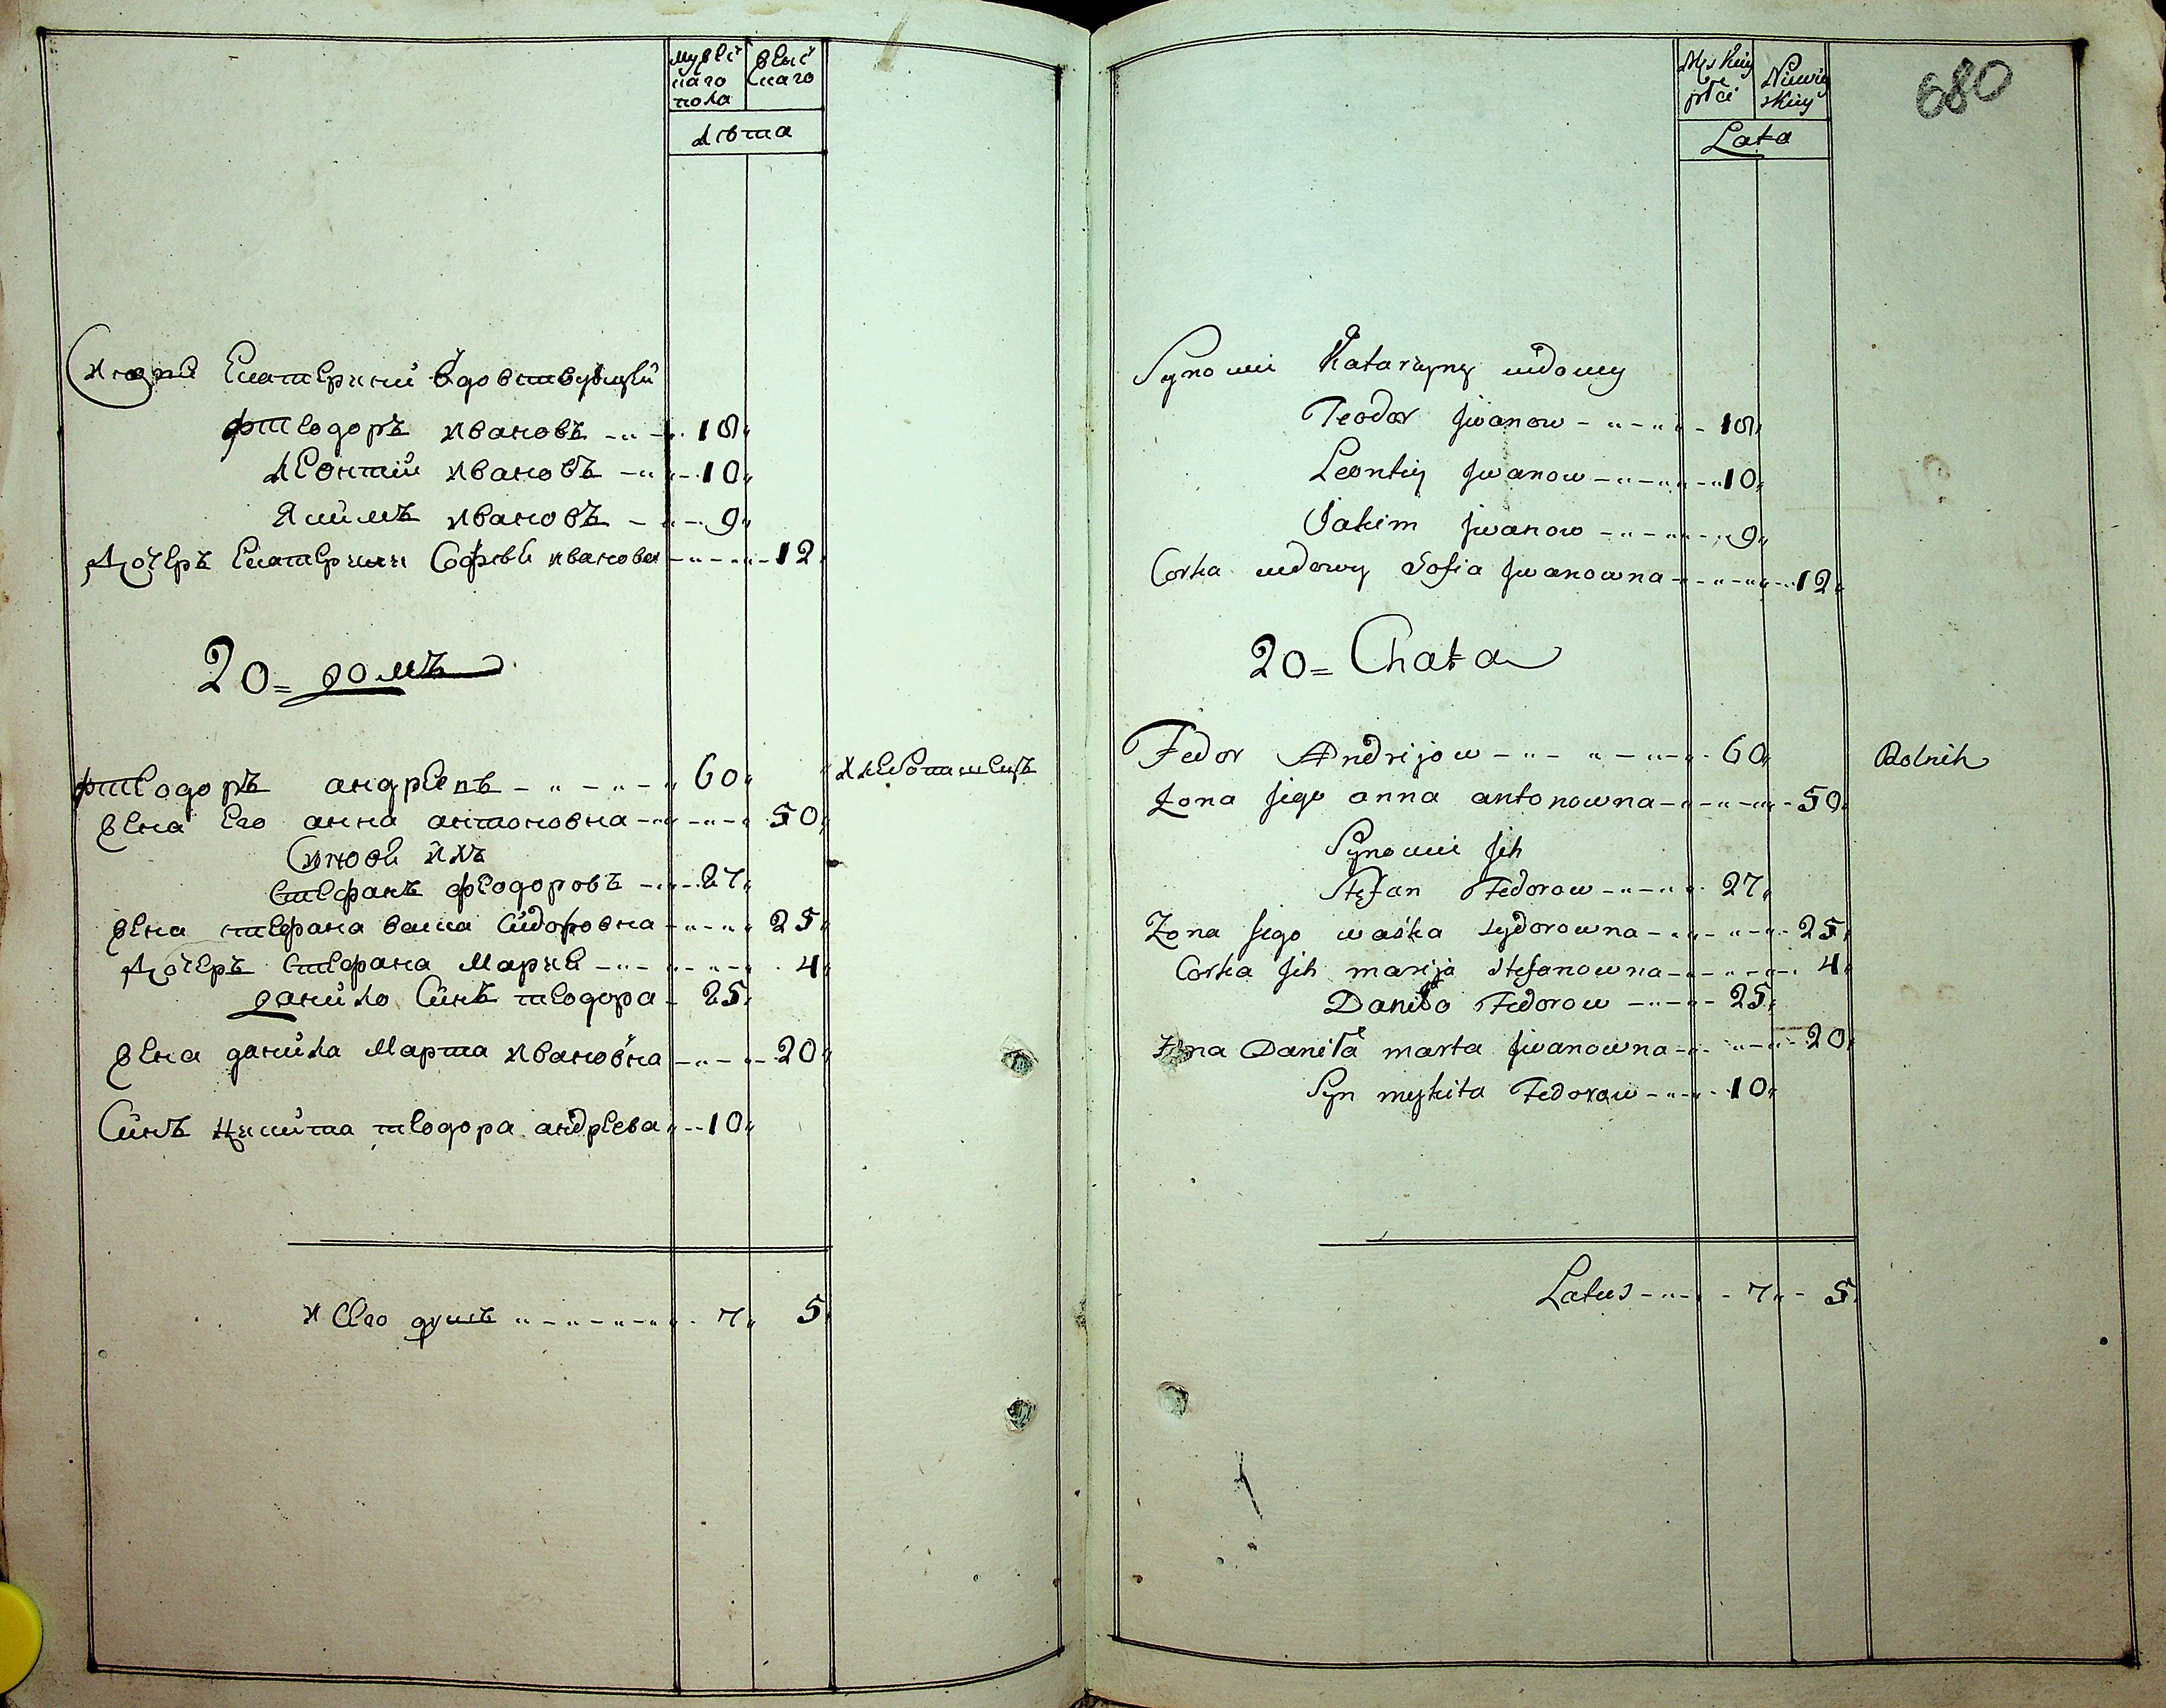 мужес
каго
пола
женс
каго
Лѣта
Екатерини вдовствующей
Ѳеодоръ Ивановъ 18
Леонтий Ивановъ 10
Якимъ Ивановъ 9
Дочеръ Екатерини София Иванова 12
20 = домъ
Ѳеодоръ андреевъ 60 Хлебопашецъ
Жена Его анна антоновна 50
Синови ихъ
Стефанъ Феодоровъ 27
Жена стефана васка Сидоровна 25
Дочеръ Стефана Мария 4
данило Синъ теодора 25
Жена данила Марта Ивановна 20
Синъ Никита теодора андреева 10
Всего душъ 7 5
Męskiey
płci
Niewie
skiey
Lata
680
Synowie Katarzyny wdowy
Teodor Jwanow 18
Leontiy Jwanow 10
Jakim Jwanow 9
Corka wdowy Sofia Jwanowna 12
20 = Chata
Fedor Andrijow 60 Rolnik
Żona Jego anna antonowna 50
Synowie Jch
Stefan Fedorow 27
Zona Jego waśka sydorowna 25
Corka Jch marija Stefanowna 4
Daniło Fedorow 25
Żona Daniła marta Jwanowna 20
Syn mykita Fedorow 10
Latus 7 5